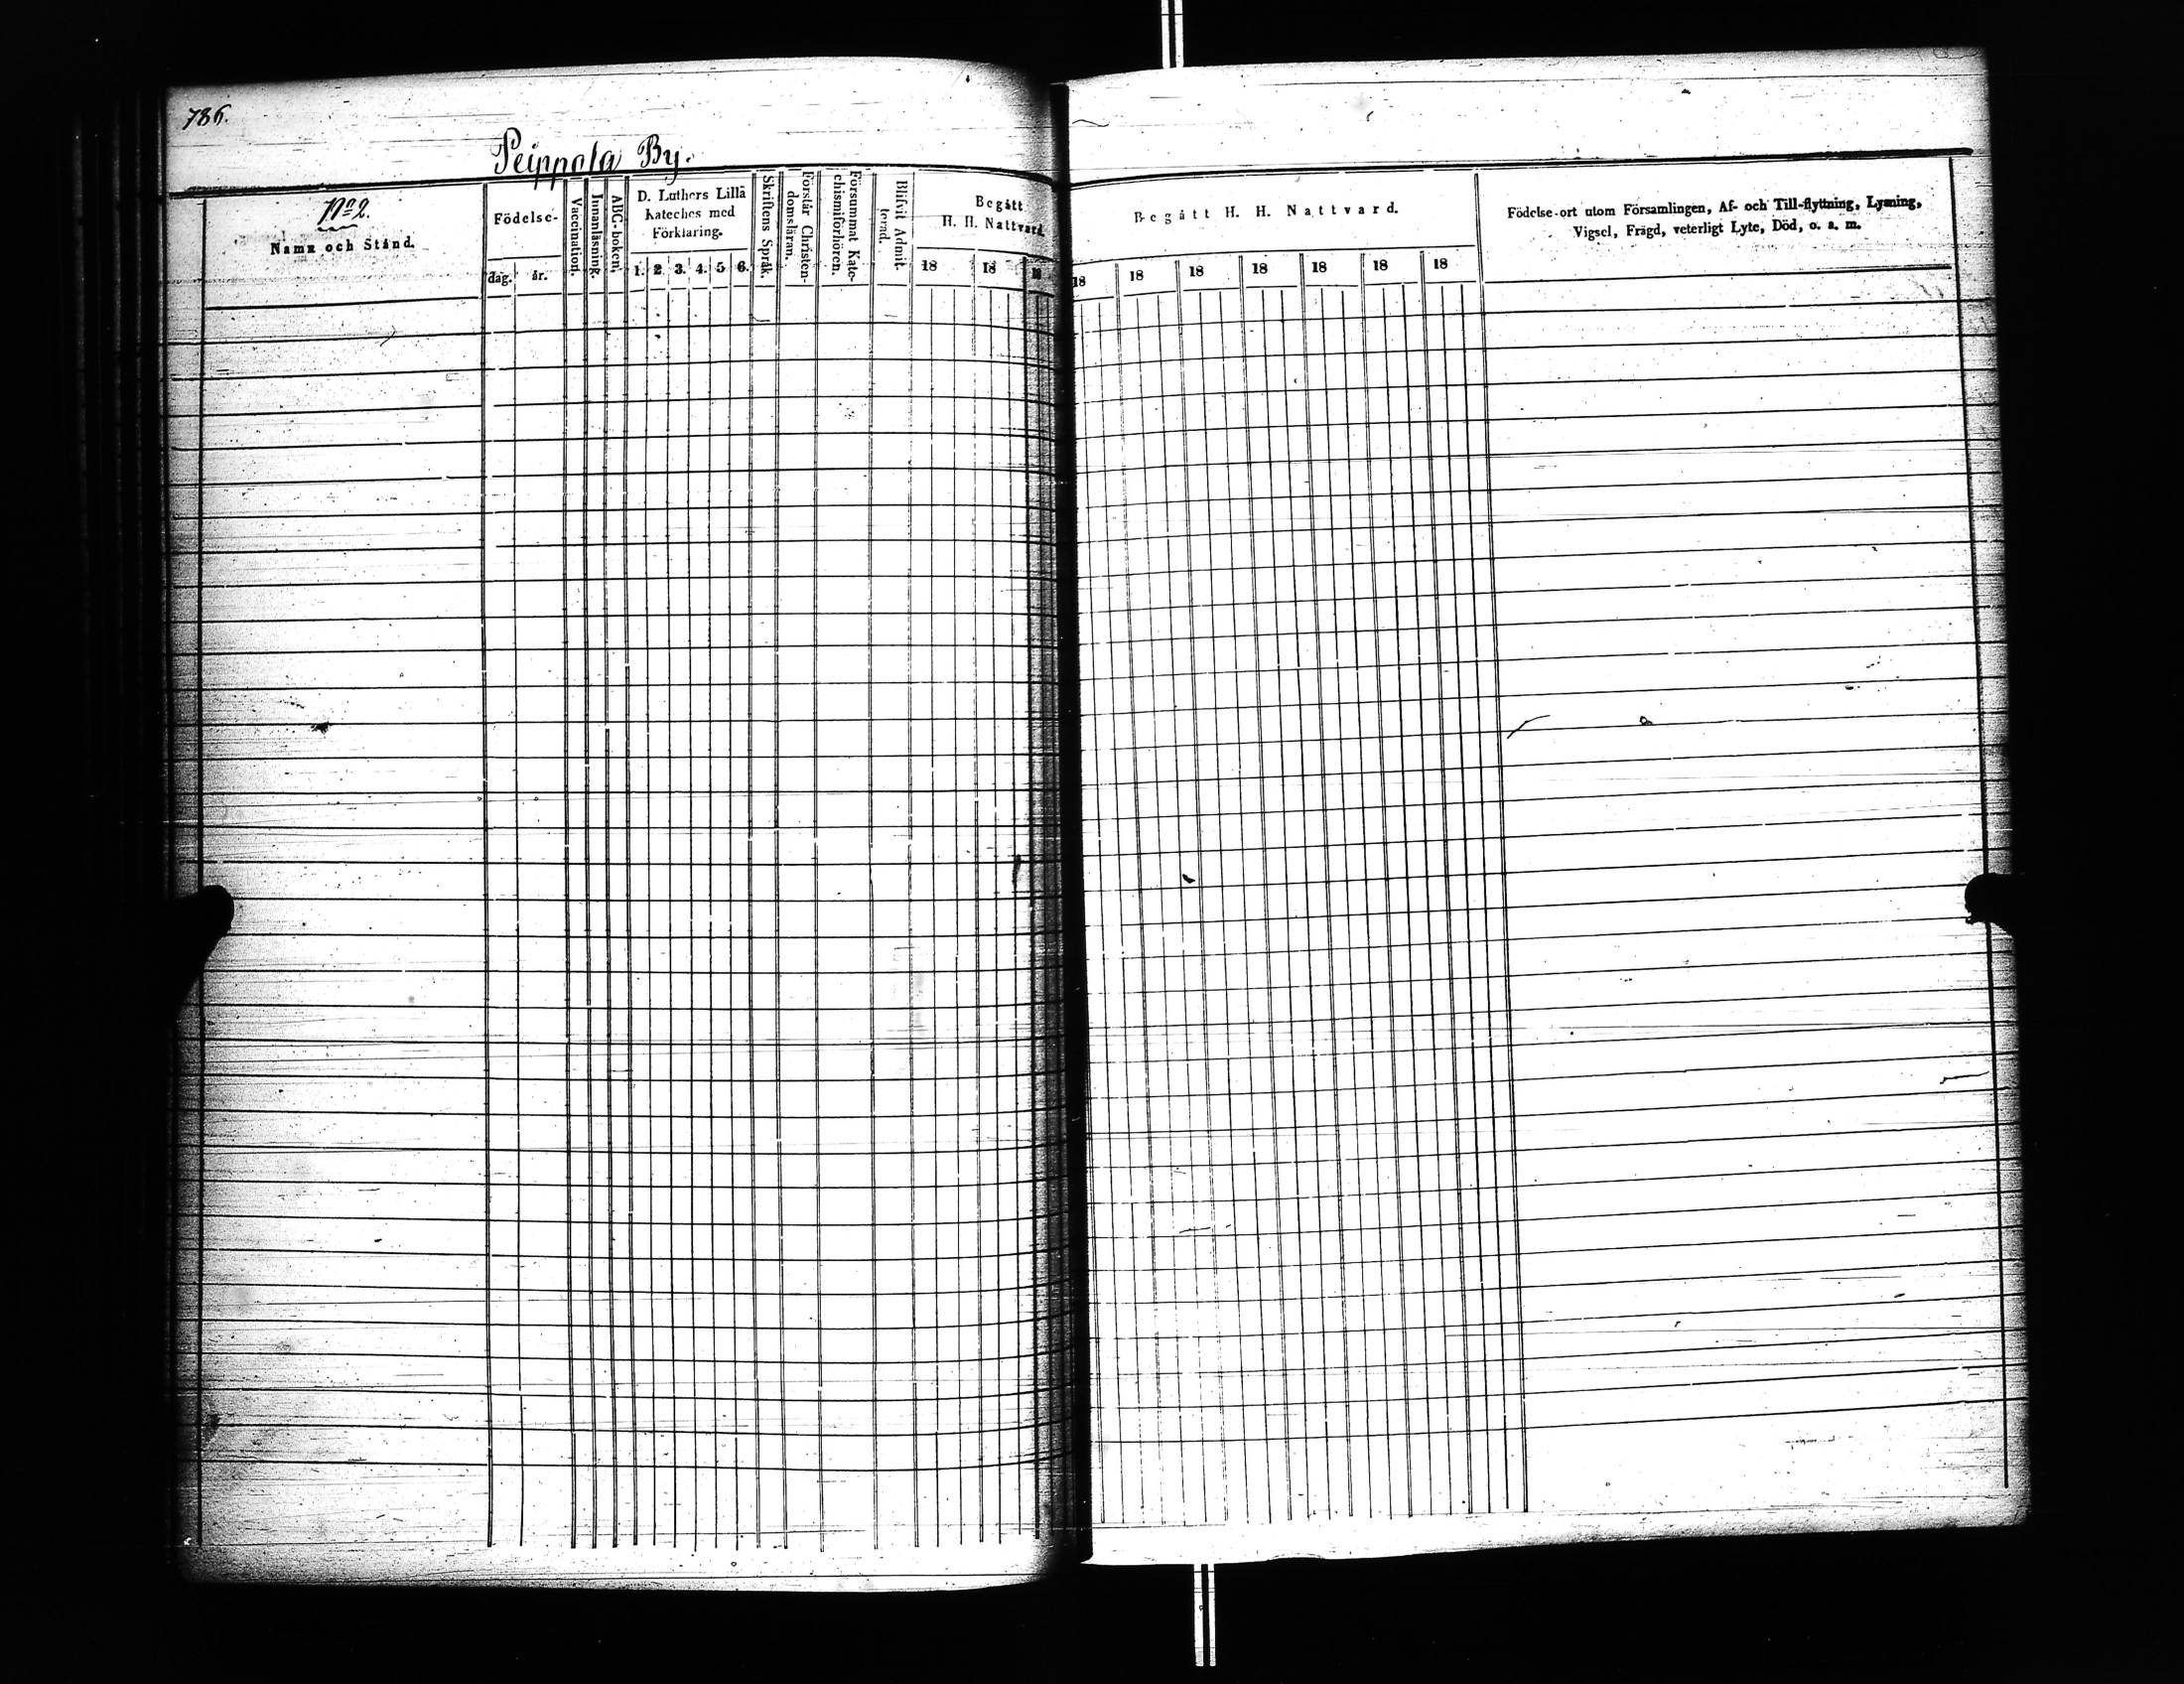 786.
Peippola By.
No 2.
Namn och Stånd.
Födelse-
dag. år.
Vaccination.
Innanläsning.
ABC-boken.
D. Luthers Lilla
Kateches med
Förklaring.
1. 2 3. 4. 5 6.
Skriftens Språk.
Förstår Christen-
domsläran.
Försummat Kate-
chismiförhören.
Blifvit Admit-
terad.
Begått
H. H. Nattvard.
18 18 18
Begått H. H. Nattvard.
18 18 18 18 18 18 18
Födelse-ort utom Församlingen, Af- och Till-flyttning, Lysning,
Vigsel, Frägd, veterligt Lyte, Död, o. s. m.